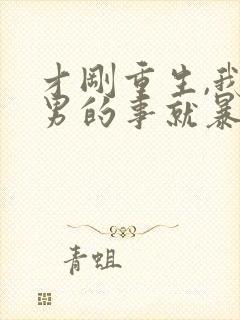 才刚重生,我
男的事就暴
青蛆